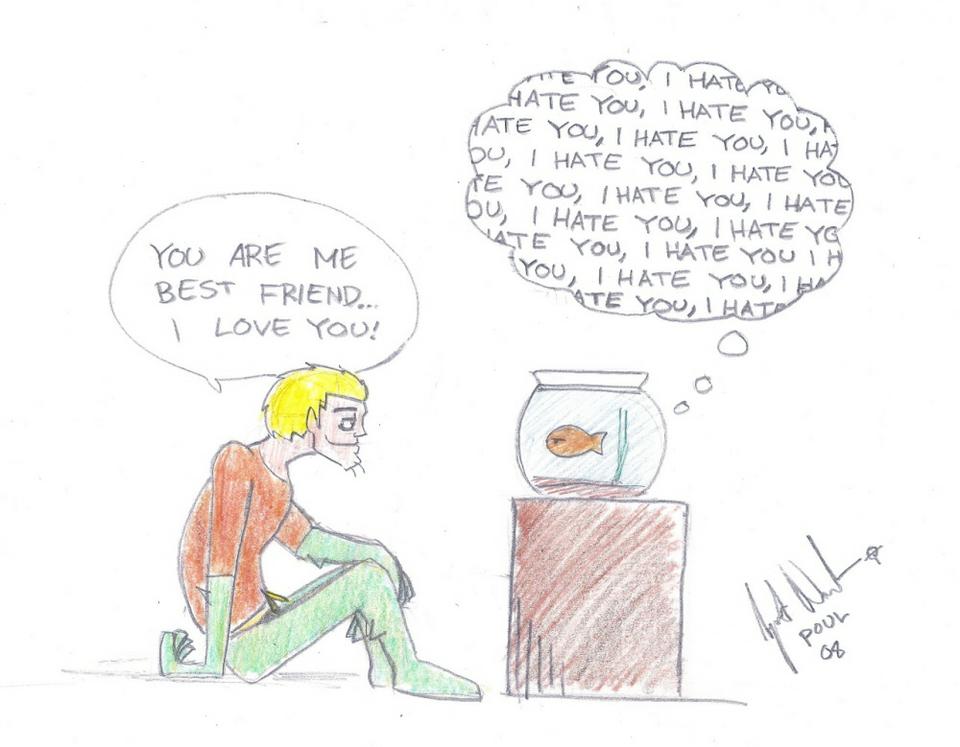 YOU ARE ME
BEST FRIEND...
I LOVE YOU!
YOU, I HATE YO
HATE YOU, I HATE YOU,
HATE YOU, I HATE YOU, I HA
OU, I HATE YOU, I HATE YOU
TE YOU, I HATE YOU, I HATE
OU, I HATE YOU, I HATE YO
ATE YOU, I HATE YOU I H
YOU, I HATE YOU, I HA
ATE YOU, I HATE
POUL
08